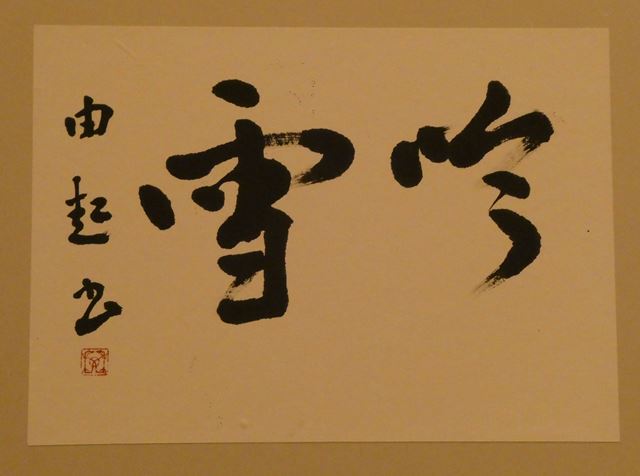 吟雪
由起书